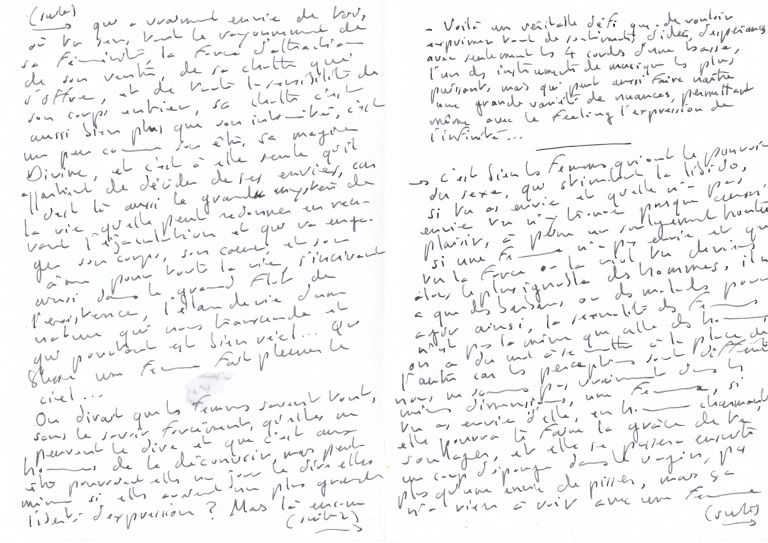 (suite)
→ qui a vraiment envie de toi,
où tu sens, tout le rayonnement de
sa féminité, la force d'attraction
de son ventre, de sa chatte qui
s'offre, et de toute la sensibilité de
son corps entier, sa chatte c'est
aussi bien plus que son intimité, c'est
un peu comme son être, sa magie
Divine, et c'est à elle seule qu'il
appartient de décider de ses envies, car
c'est là aussi le grand mystère de
la vie, qu'elle peut redonner en rece-
vant l'éjaculation et qui va enga-
ger son corps, son coeur et son
âme pour toute la vie s'inscrivant
ainsi dans le grand flot de
l'existence, l'élan de vie d'une
nature qui nous transcende et
qui pourtant est bien réel... Qui
blesse une Femme fait pleurer le
ciel...
On dirait que les femmes savent tout,
sans le savoir forcément, qu'elles ne
peuvent le dire et que c'est aux
h de le découvrir, mais peut
être pourront elles un jour le dire elles
même si elles avaient une plus grande
liberté d'expression ? Mais là encore
(suite 2)
- Voilà un véritable défi que de vouloir
exprimer tant de sentiments, d'idées, d'espérances
avec seulement les 4 cordes d'une basse,
l'un des instruments de musique les plus
puissants, mais qui peut aussi faire naître
une grande variété de nuances, permettant
même avec le feeling l'expression de
l'infinité...
→ C'est bien les Femmes qui ont le pouvoir
du sexe, qui stimulent la libido,
si tu as envie et qu'elle n'a pas
envie tu n'y presque aucun
plaisir, à peine un soulagement honteux
si une Fe n'a pas envie et que
tu la force ou la viol tu deviens
alors le plus ignoble des hommes, il n'y
a que des ou des malades pour
agir ainsi, la sexualité des Fe
n'est pas la même que celle des h
on a du mal à se mettre à la place de
l'autre car les perceptions sont différentes
nous ne sommes pas vraiment dans les
mêmes dimensions, une Femme, si
tu as envie d'elle, en h charmant
elle pourra te faire la grâce de te
soulager, et elle se passera ensuite
un coup d'éponge dans le vagin, pas
plus qu'une envie de pisser, mais ça
n'a rien à voir avec une Femme
(suite)